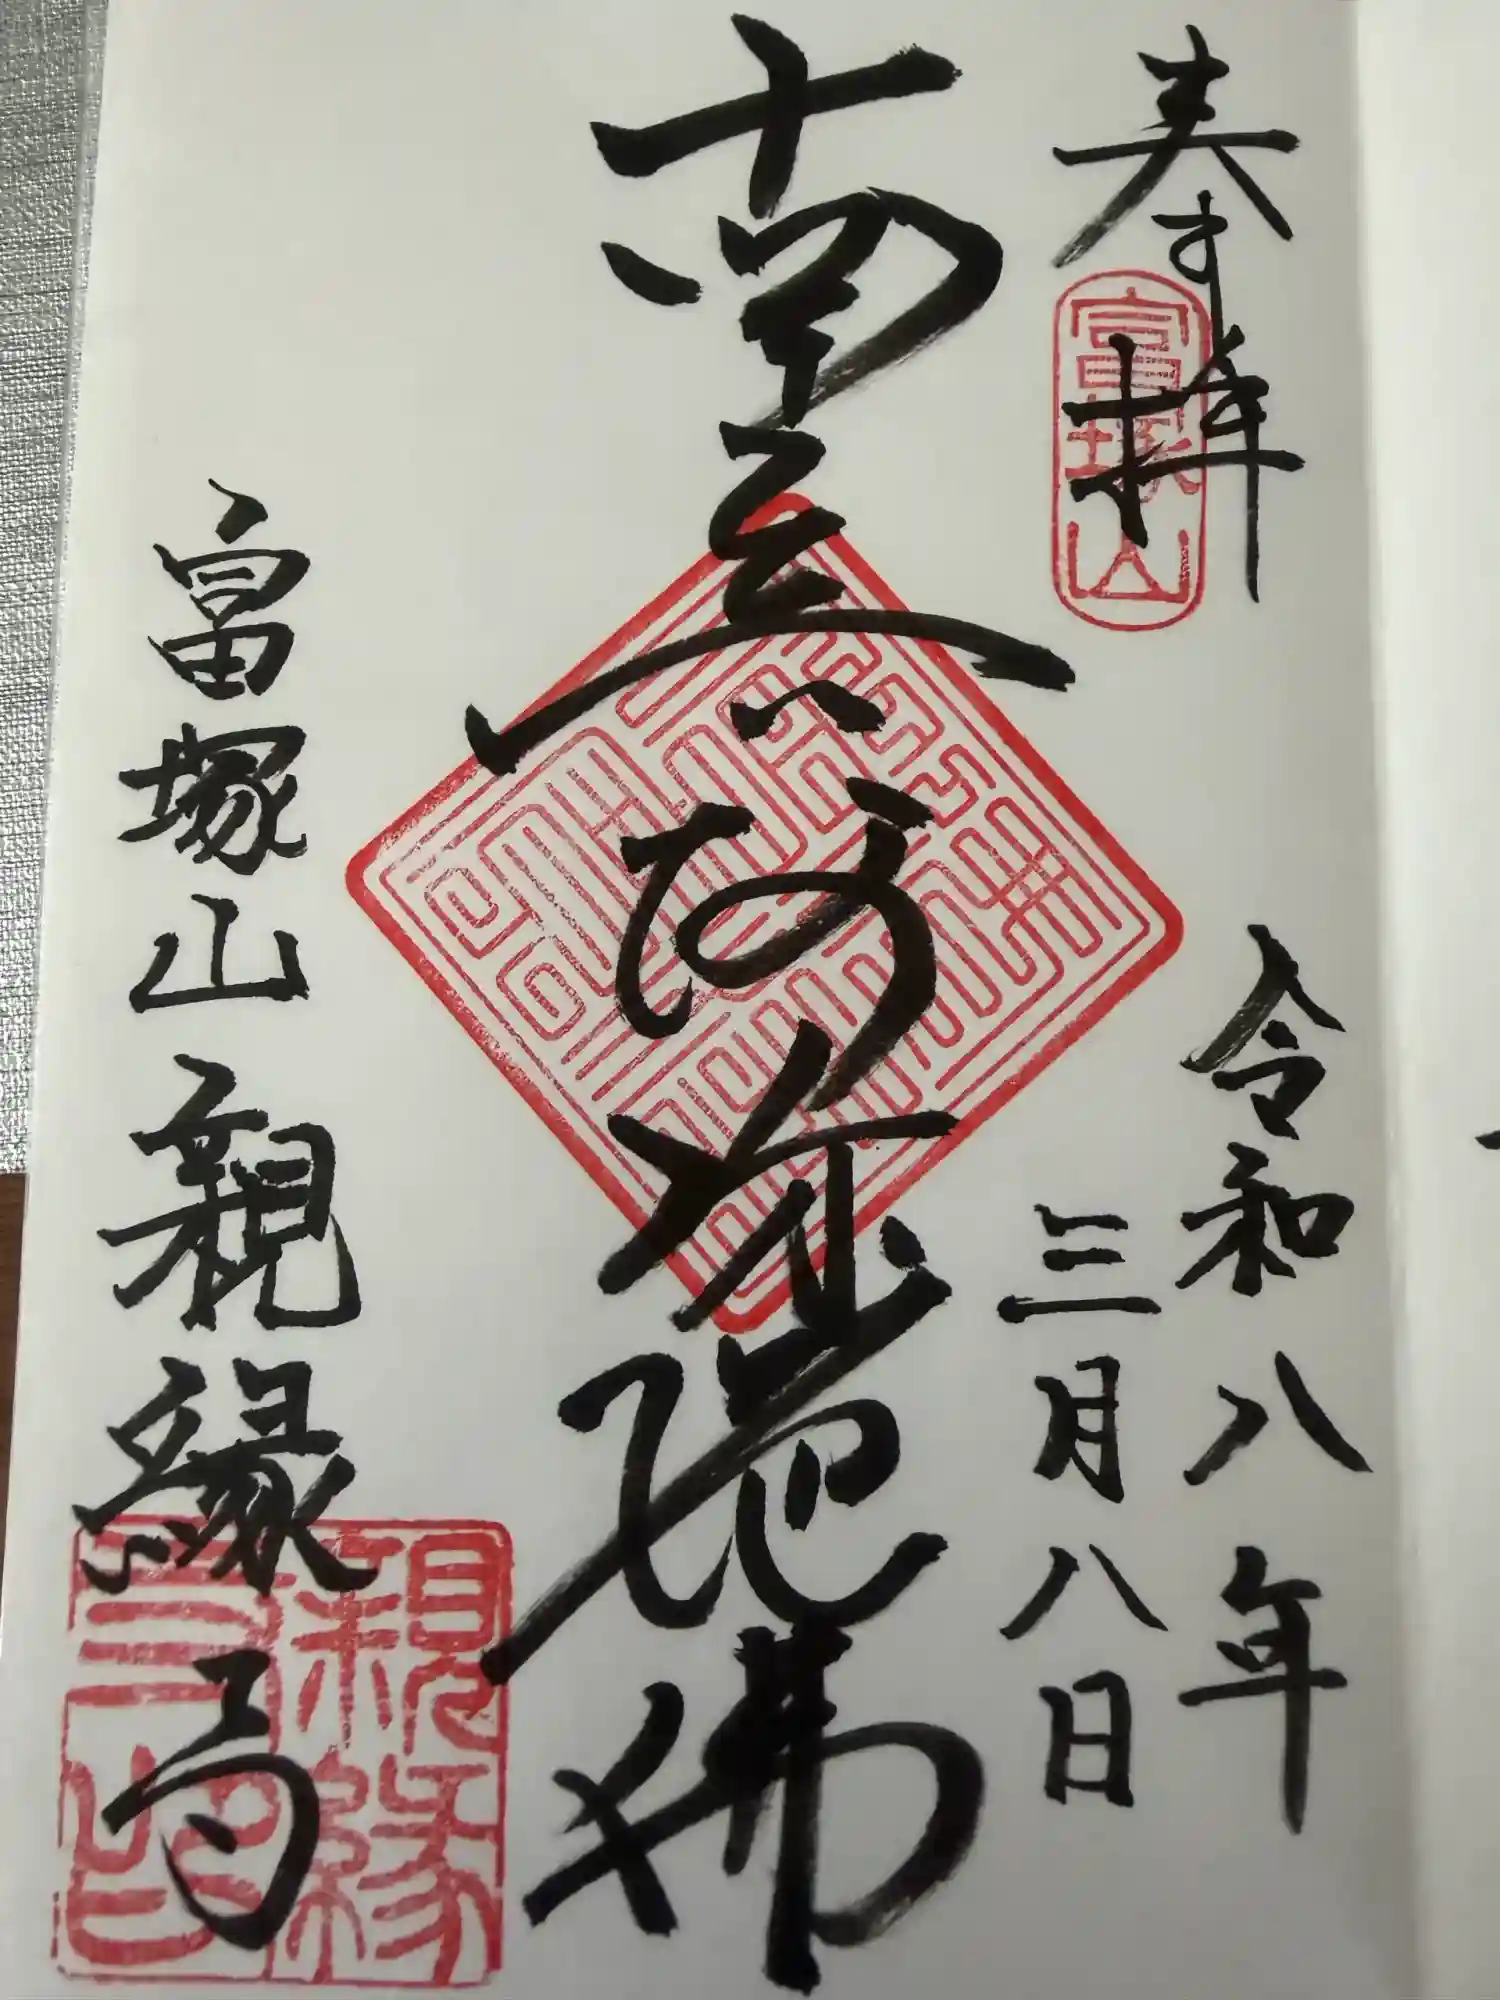 奉拝
富塚山
令和八年
三月八日
南無阿弥陀佛
富塚山 親縁寺
親縁寺印